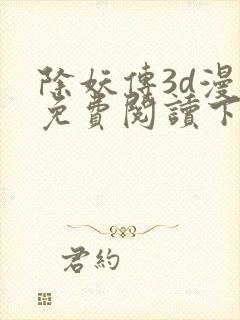 除妖傳3d漫
免費閱讀下
君約